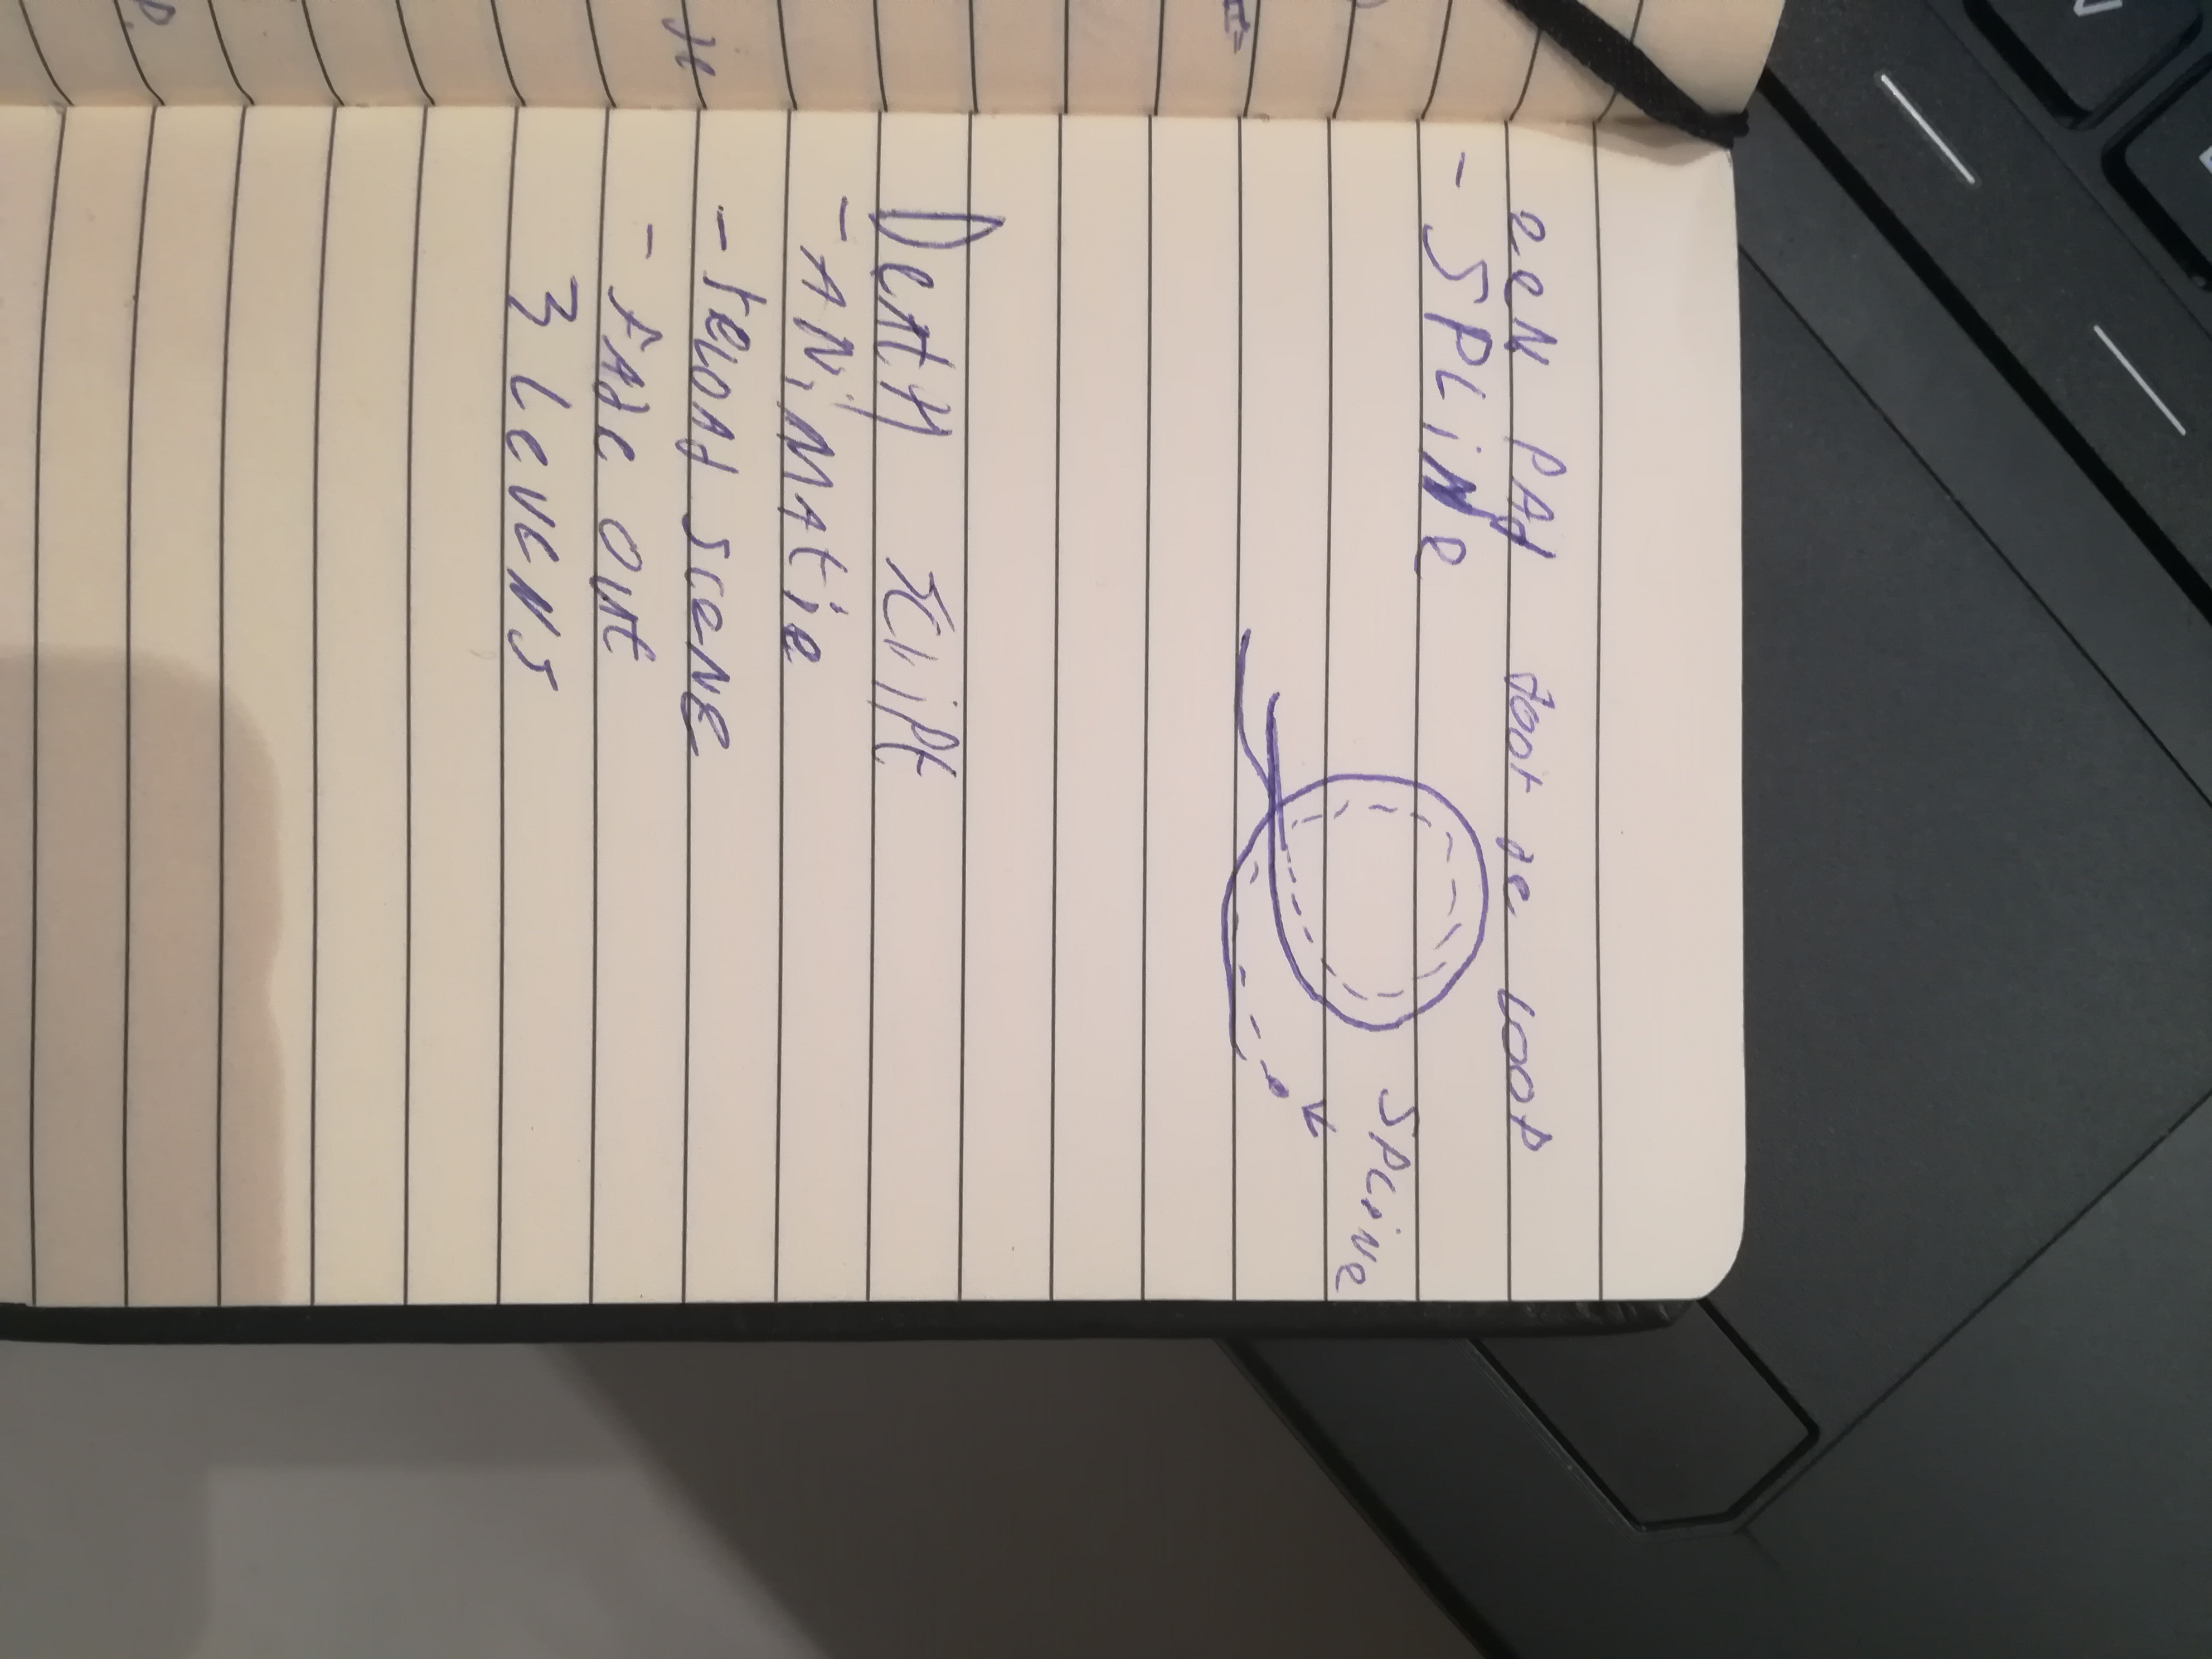 een pad door de loop
- Spline
Spline
Death Script
- Animatie
- reload scene
- fade out
3 levens